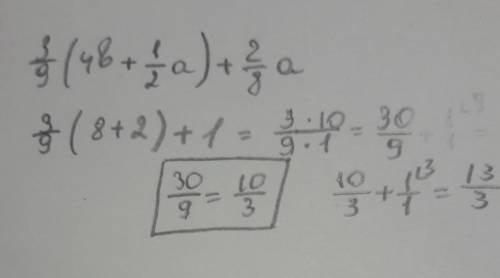 3/9 (4b + 1/2 a) + 2/8 a
3/9 (8+2) + 1 = 3·10/9·1 = 30/9
30/9 = 10/3 10/3 + 1/1 ⌊3 = 13/3